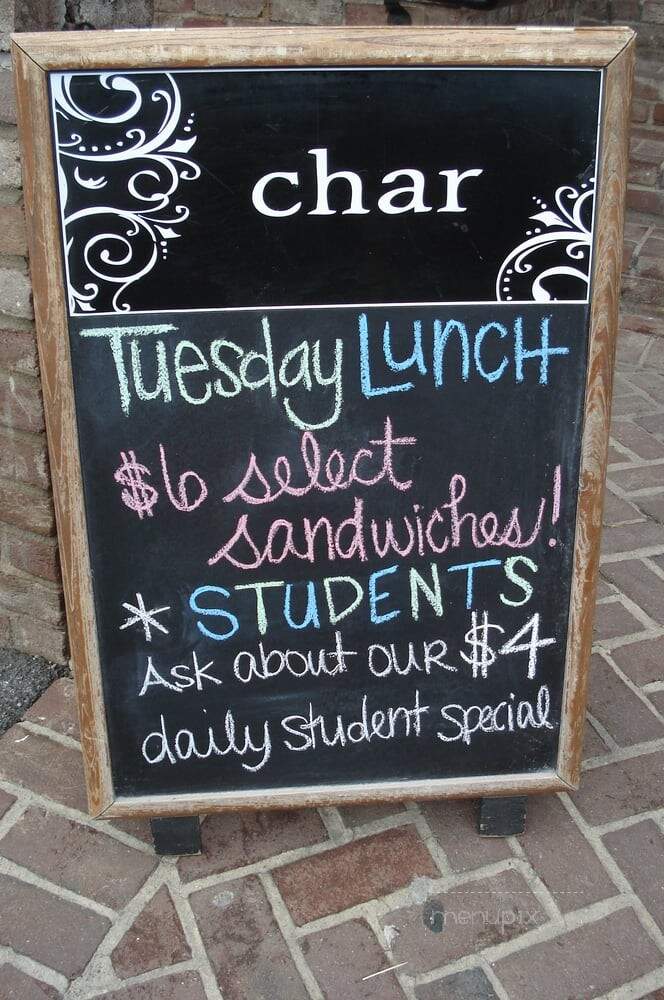 char
Tuesday Lunch
$6 select
sandwiches!
* STUDENTS
Ask about our $4
daily student special
menupix